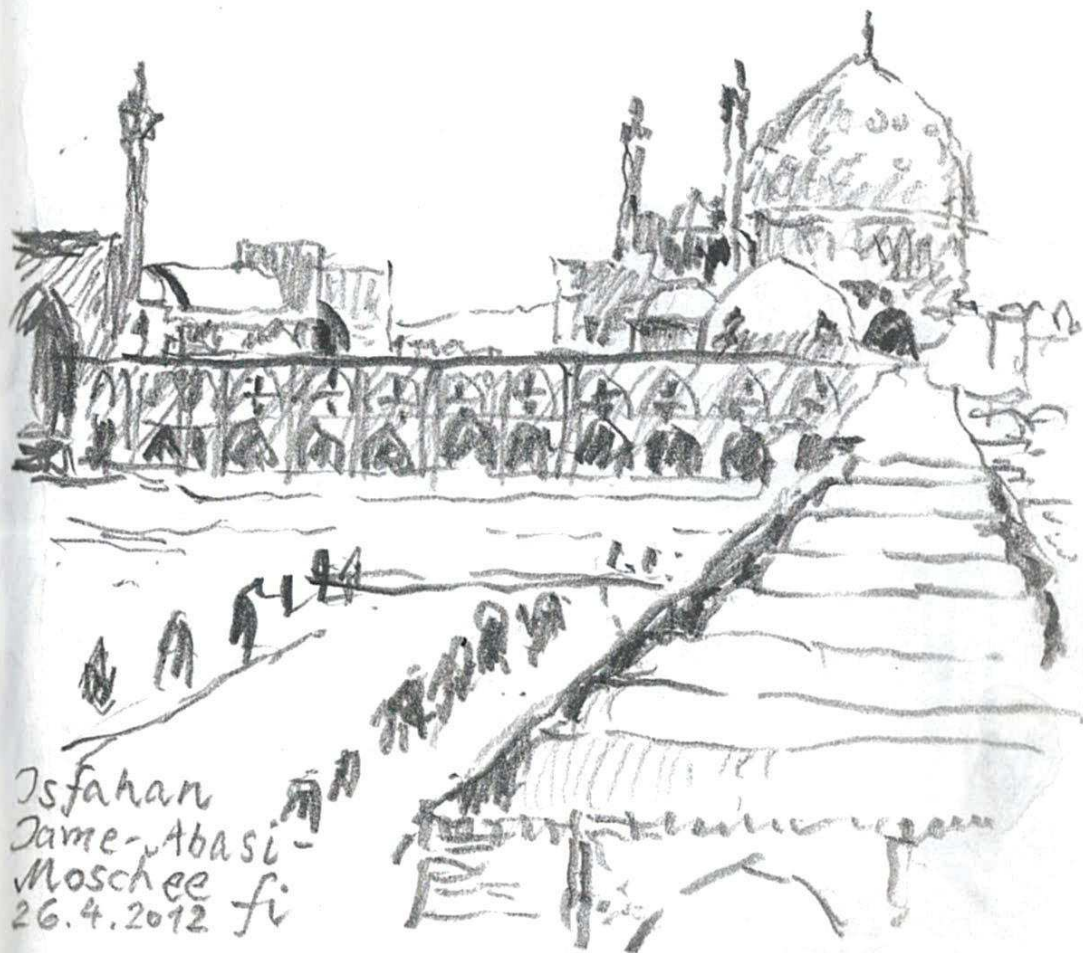 Isfahan
Jame-Abasi-
Moschee
26.4.2012 fi